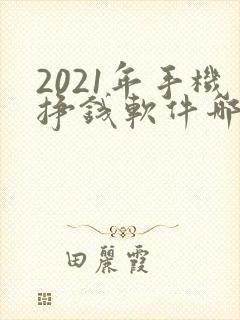 2021年手機
掙錢軟件哪
田麗霞